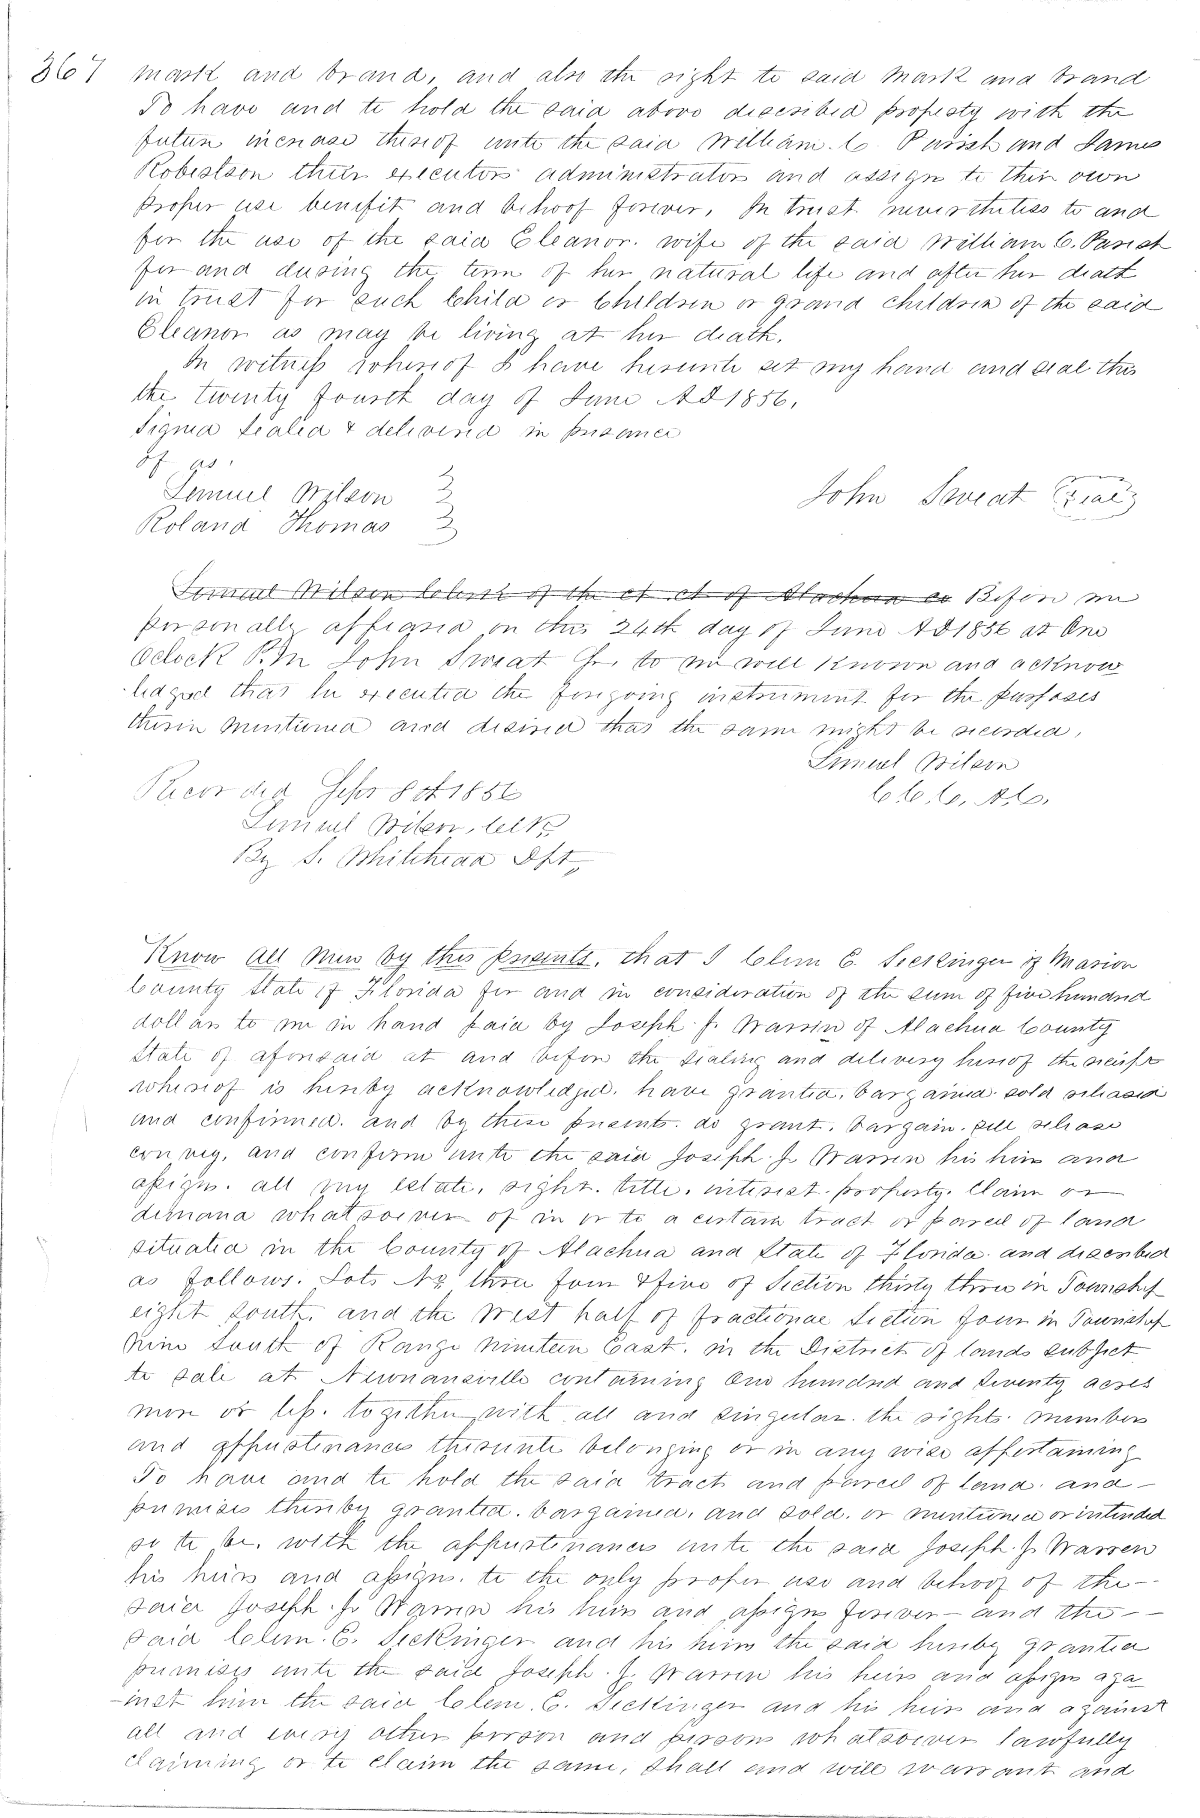 367 mark and brand, and also the right to said mark and brand
To have and to hold the said above described property with the
future increase thereof unto the said William. C. Parish and James
Robertson their executors administrators and assigns to their own
proper use benefit and behoof forever, In trust nevertheless to and
for the use of the said Eleanor. wife of the said William C. Parish
for and during the term of her natural life and after her death
in trust for such Child or Children or grand children of the said
Eleanor as may be living at her death.
In witness whereof I have hereunto set my hand and seal this
the twenty fourth day of June AD 1856,
Signed Sealed & delivered in presence
of us.
Lemuel Wilson
Roland Thomas
John Sweat Seal
Lemuel Wilson Clerk of the ct ct of Alachua co Before me
personally appeared on this 24th day of June AD 1856 at One
Oclock P.M John Sweat Sr. to me well known and acknow
ledged that he executed the foregoing instrument for the purposes
therein mentioned and desired that the same might be recorded,
Lemuel Wilson
C. C. C. A. C.
Recorded Sept 8th 1856
Lemuel Wilson, Clk
By S. Whitehead Dpt,
Know all men by this presents, that I Clem E. Seckinger of Marion
County State of Florida for and in consideration of the sum of five hundred
dollars to me in hand paid by Joseph. J. Warren of Alachua County
State of aforesaid at and before the sealing and delivery hereof the receipt
whereof is hereby acknowledged. have granted, bargained. sold released
and confirmed. and by these presents. do grant. bargain. sell release
convey, and confirm unto the said Joseph. J. Warren his heirs and
assigns. all my estate, right. title. interest. property. Claim or
demand whatsoever of in or to a certain tract or parcel of land
situated in the County of Alachua and State of Florida and described
as follows. Lots No three four & five of Section thirty three in Township
eight south, and the West half of fractional Section four in Township
Nine South of Range Nineteen East. in the District of lands subject
to sale at Newnansville containing One hundred and Seventy acres
more or less. together with all and singular the rights. members
and appurtenances thereunto belonging or in any wise appertaining
To have and to hold the said tract and parcel of land. and
premises thereby granted. bargained, and sold. or mentioned or intended
so to be. with the appurtenances unto the said Joseph. J. Warren
his heirs and assigns. to the only proper use and behoof of the
said Joseph. J. Warren his heirs and assigns forever and the
said Clem. E. Seckinger and his heirs the said hereby granted
premises unto the said Joseph. J. Warren his heirs and assigns aga
-inst him the said Clem. E. Seckinger and his heirs and against
all and every other person and persons whatsoever lawfully
claiming or to claim the same, shall and will warrant and